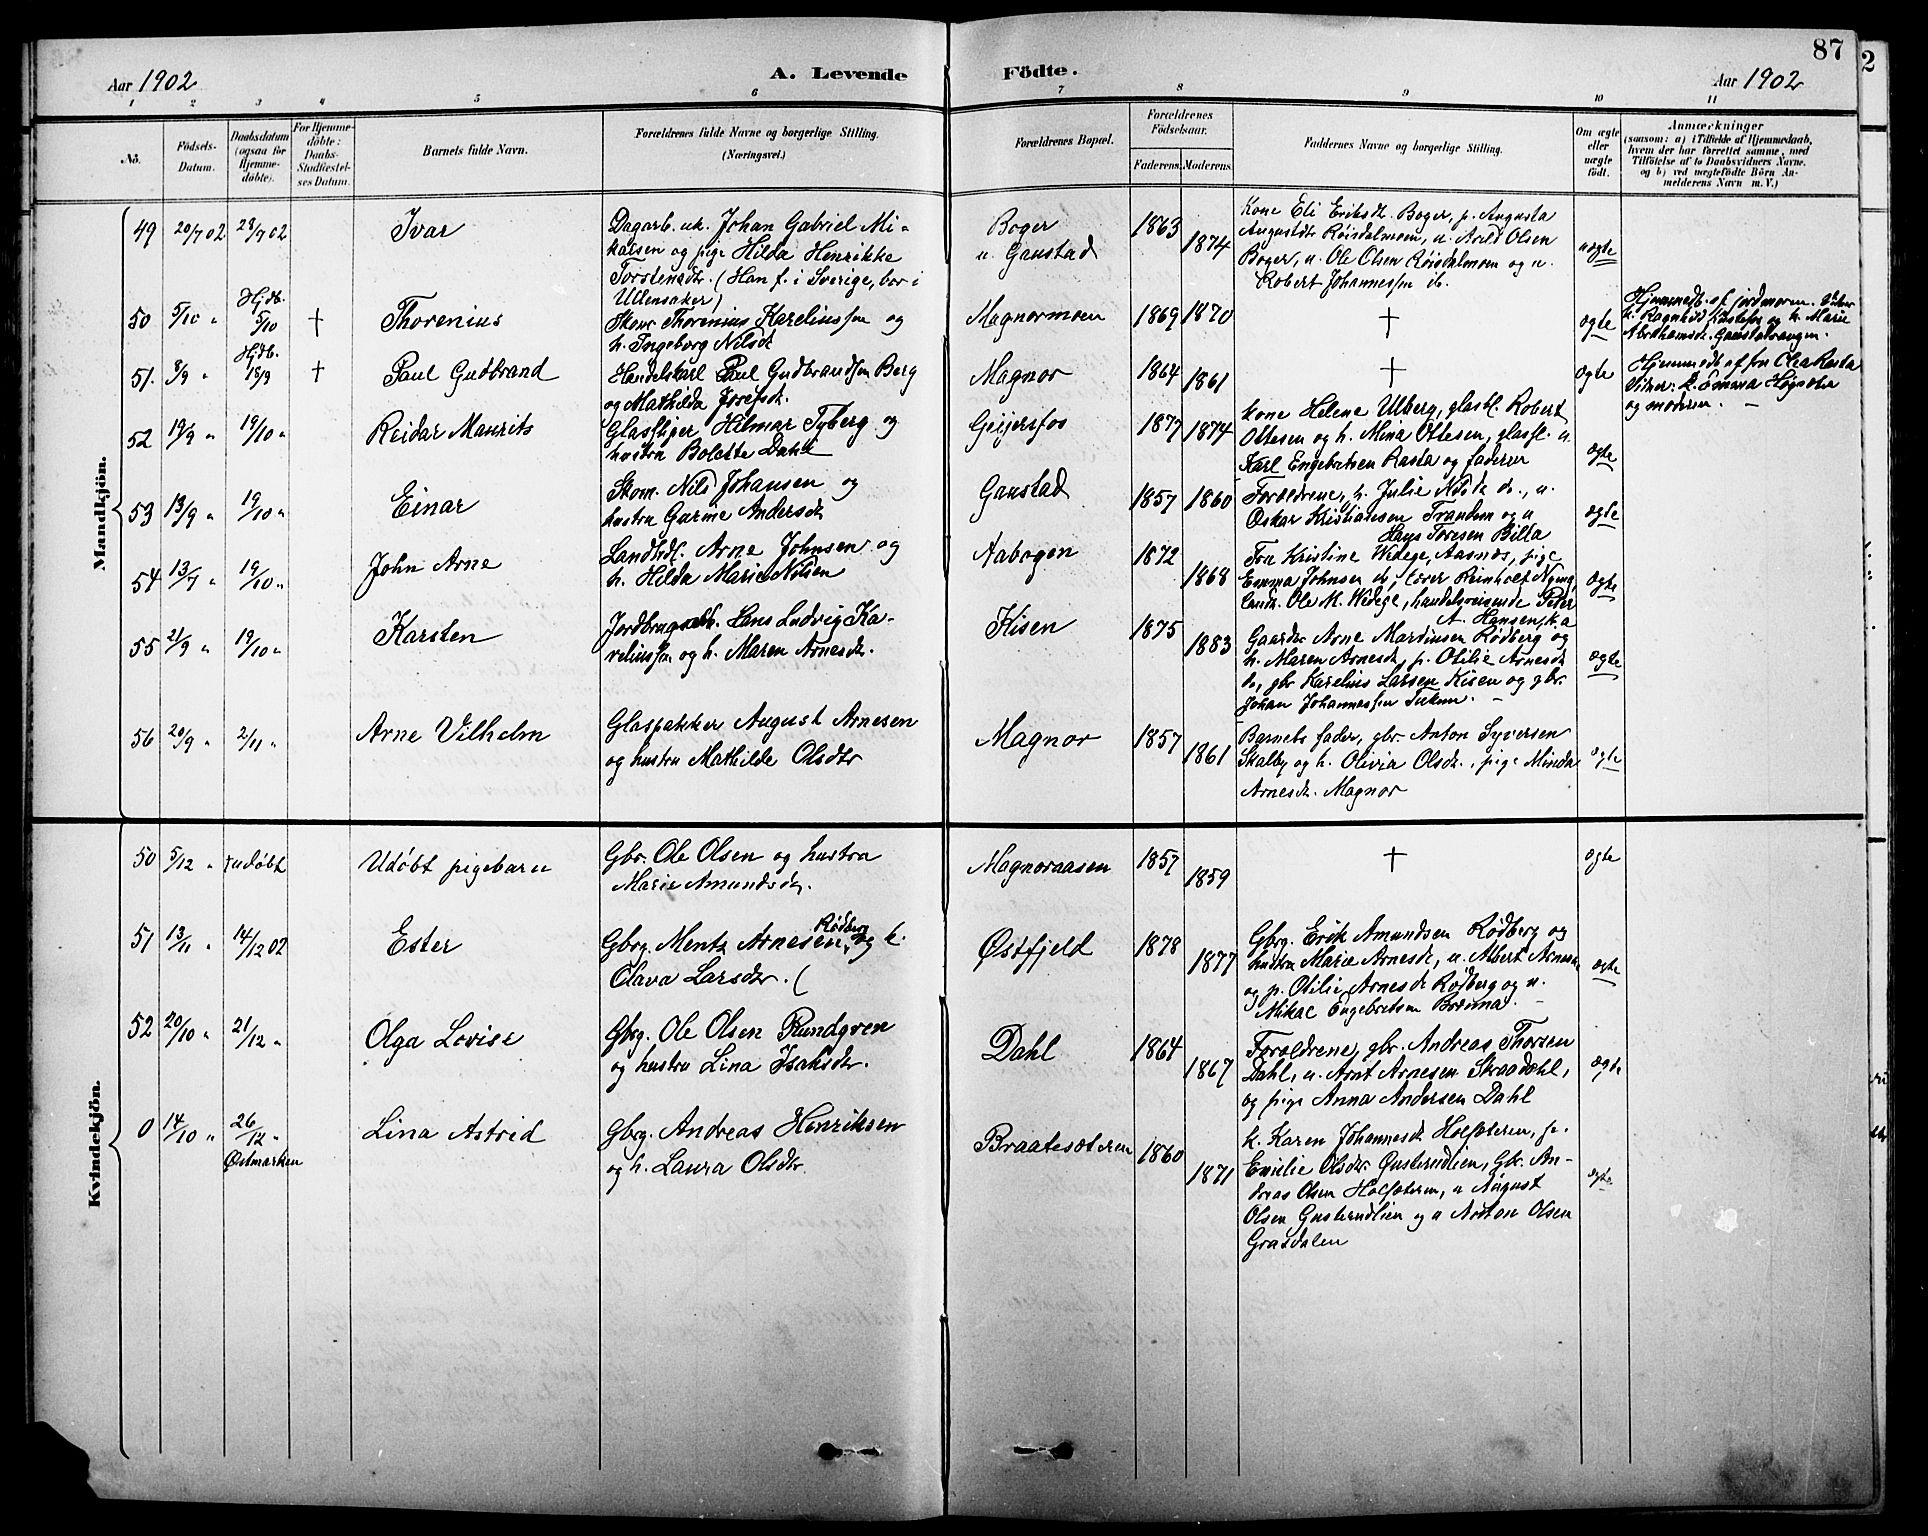 87
2
Aar 1902
A. Levende Födte.
Aar 1902
1 2 3 4 5 6 7 8 9 10 11
No.
Födsels-Datum.
Daabsdatum (ogsaa for Hjemme-döbte).
For Hjemme-döbte: Daabs-Stadfæstel-ses Datum.
Barnets fulde Navn.
Forældrenes fulde Navne og borgerlige Stilling. (Næringsvei.)
Forældrenes Bopæl.
Forældrenes Födselsaar.
Faderens. Moderens.
Faddernes Navne og borgerlige Stilling.
Om ægte eller uægte födt.
Anmærkninger
(saasom: a) i Tilfælde af Hjemmedaab, hvem der har forrettet samme, med Tilföielse af to Daabsvidners Navne. og b) ved uægtefödte Börn An-melderens Navn m. V.)
Mandkjön.
49 20/7 02 28/7 02 Ivar
Dagarb. uk. Johan Gabriel Mi-
kalsen og pige Hilda Henrikke
Torstensdr. (Han f. i Sverige, bor i
Ullensaker)
Boger
u. Gaustad
1863 1874
Kone Eli Eriksdt. Boger, p. Augusta
Augustdtr Röisdalmoen, u. Arild Olsen
Boger, u. Ole Olsen Röisdalmoen og u.
Robert Johannessen ib.
uægte
50 5/10 " Hjdb. 5/10 † Thorenius
Skom. Thorenius Kareliussen og
h. Ingeborg Nilsdt
Magnormoen 1869 1870 † ægte
Hjemmedb. af jordmoren. Vidner
h. Ragnhild Kristofers og h. Marie
Abrahamsdt. Gaustadvangen.
51. 8/9 " Hjdb. 18/9 † Paul Gudbrand
Handelskarl Paul Gudbrandsen Berg
og Mathilda Josefsdt.
Magnor 1864 1861 † ægte
Hjemmedb. af fru Olea Rasta
Vidner: L. Emma Högseth
og moderen. —
52 19/9 " 19/10 " Reidar Maurits
Glassliper Hilmar Tyberg og
hustru Bolette Dahl
Geijersfos 1877 1874
Kone Helene Ulberg, glasbl. Robert
Ottesen og h. Mina Ottesen, glasbl. u.
Karl Engebretsen Rasta og faderen
ægte
53 13/9 " 19/10 " Einar
Skom. Nils Johansen og
hustru Gurine Andersdt
Gaustad 1857 1860
Forældrene, h. Julie Nilsdt do., u.
Oskar Kristiansen Trandem og u
Hans Toresen Billa
ægte
54 13/7 " 19/10 " John Arne
Landhdl. Arne Johnsen og
h. Hilda Marie Nilsen
Aabogen 1872 1868
Fru Kristine Wedege, Aasnes, pige
Emma Johnsen do, lærer Reinholt Nyeng
landh. Ole M. Wedege, handelsreisende Peter
A. Hansen, K.a
ægte
55 21/9 " 19/10 " Karsten
Jordbrugsarb. Hans Ludvig Ka-
reliussen og h. Maren Arnesdr.
Kisen 1875 1883
Gaardbr Arne Mardinsen Rödberg og
h. Maren Arnesdt, p. Otilie Arnesdt
do, gbr Karelius Larsen Kisen og gbr.
Johan Johannessen Tukun. —
ægte
56 20/9 " 2/11 " Arne Vilhelm
Glaspakker August Arnesen
og hustru Mathilde Olsdtr
Magnor 1857 1861
Barnets fader, gbr. Anton Syversen
Skalby og h. Olivia Olsdt., pige Minda
Arnesdt. Magnor
ægte
Kvindekjön.
50 5/12 " udöbt Udöbt pigebarn
Gbr. Ole Olsen og hustru
Marie Amundsdr.
Magnoraasen 1857 1859 † ægte
51 13/11 " 14/12 02 Ester
Rödberg
Gbrg. Mentz Arnesen, og h.
Olava Larsdtr. (
Østfjeld 1878 1877
Gbrg. Erik Amundsen Rödberg og
hustru Marie Arnesdt, u. Albert Arnesen
og p. Otilie Arnesdt Rödberg og u.
Mikal Engebretsen Brenna.
ægte
52 20/10 " 21/12 " Olga Lovise
Gbrg. Ole Olsen Rundgren
og hustru Lina Isaksdr.
Dahl 1864 1867
Forældrene, gbr. Andreas Thorsen
Dahl, u. Arnt Arnesen Skraadahl,
og pige Anna Andersen Dahl
ægte
0 14/10 " 26/12 " Østmarken
Lina Astrid
Gbrg. Andreas Henriksen
og h. Laura Olsdtr.
Braatesæteren 1860 1871
k. Karen Johannesdt Holsæteren, p.
Emilie Olsdr. Gusterudlien, Gbr. An-
dreas Olsen Holsæteren, u August
Olsen Gusterudlien og u Anton Olsen
Grasdalen
ægte